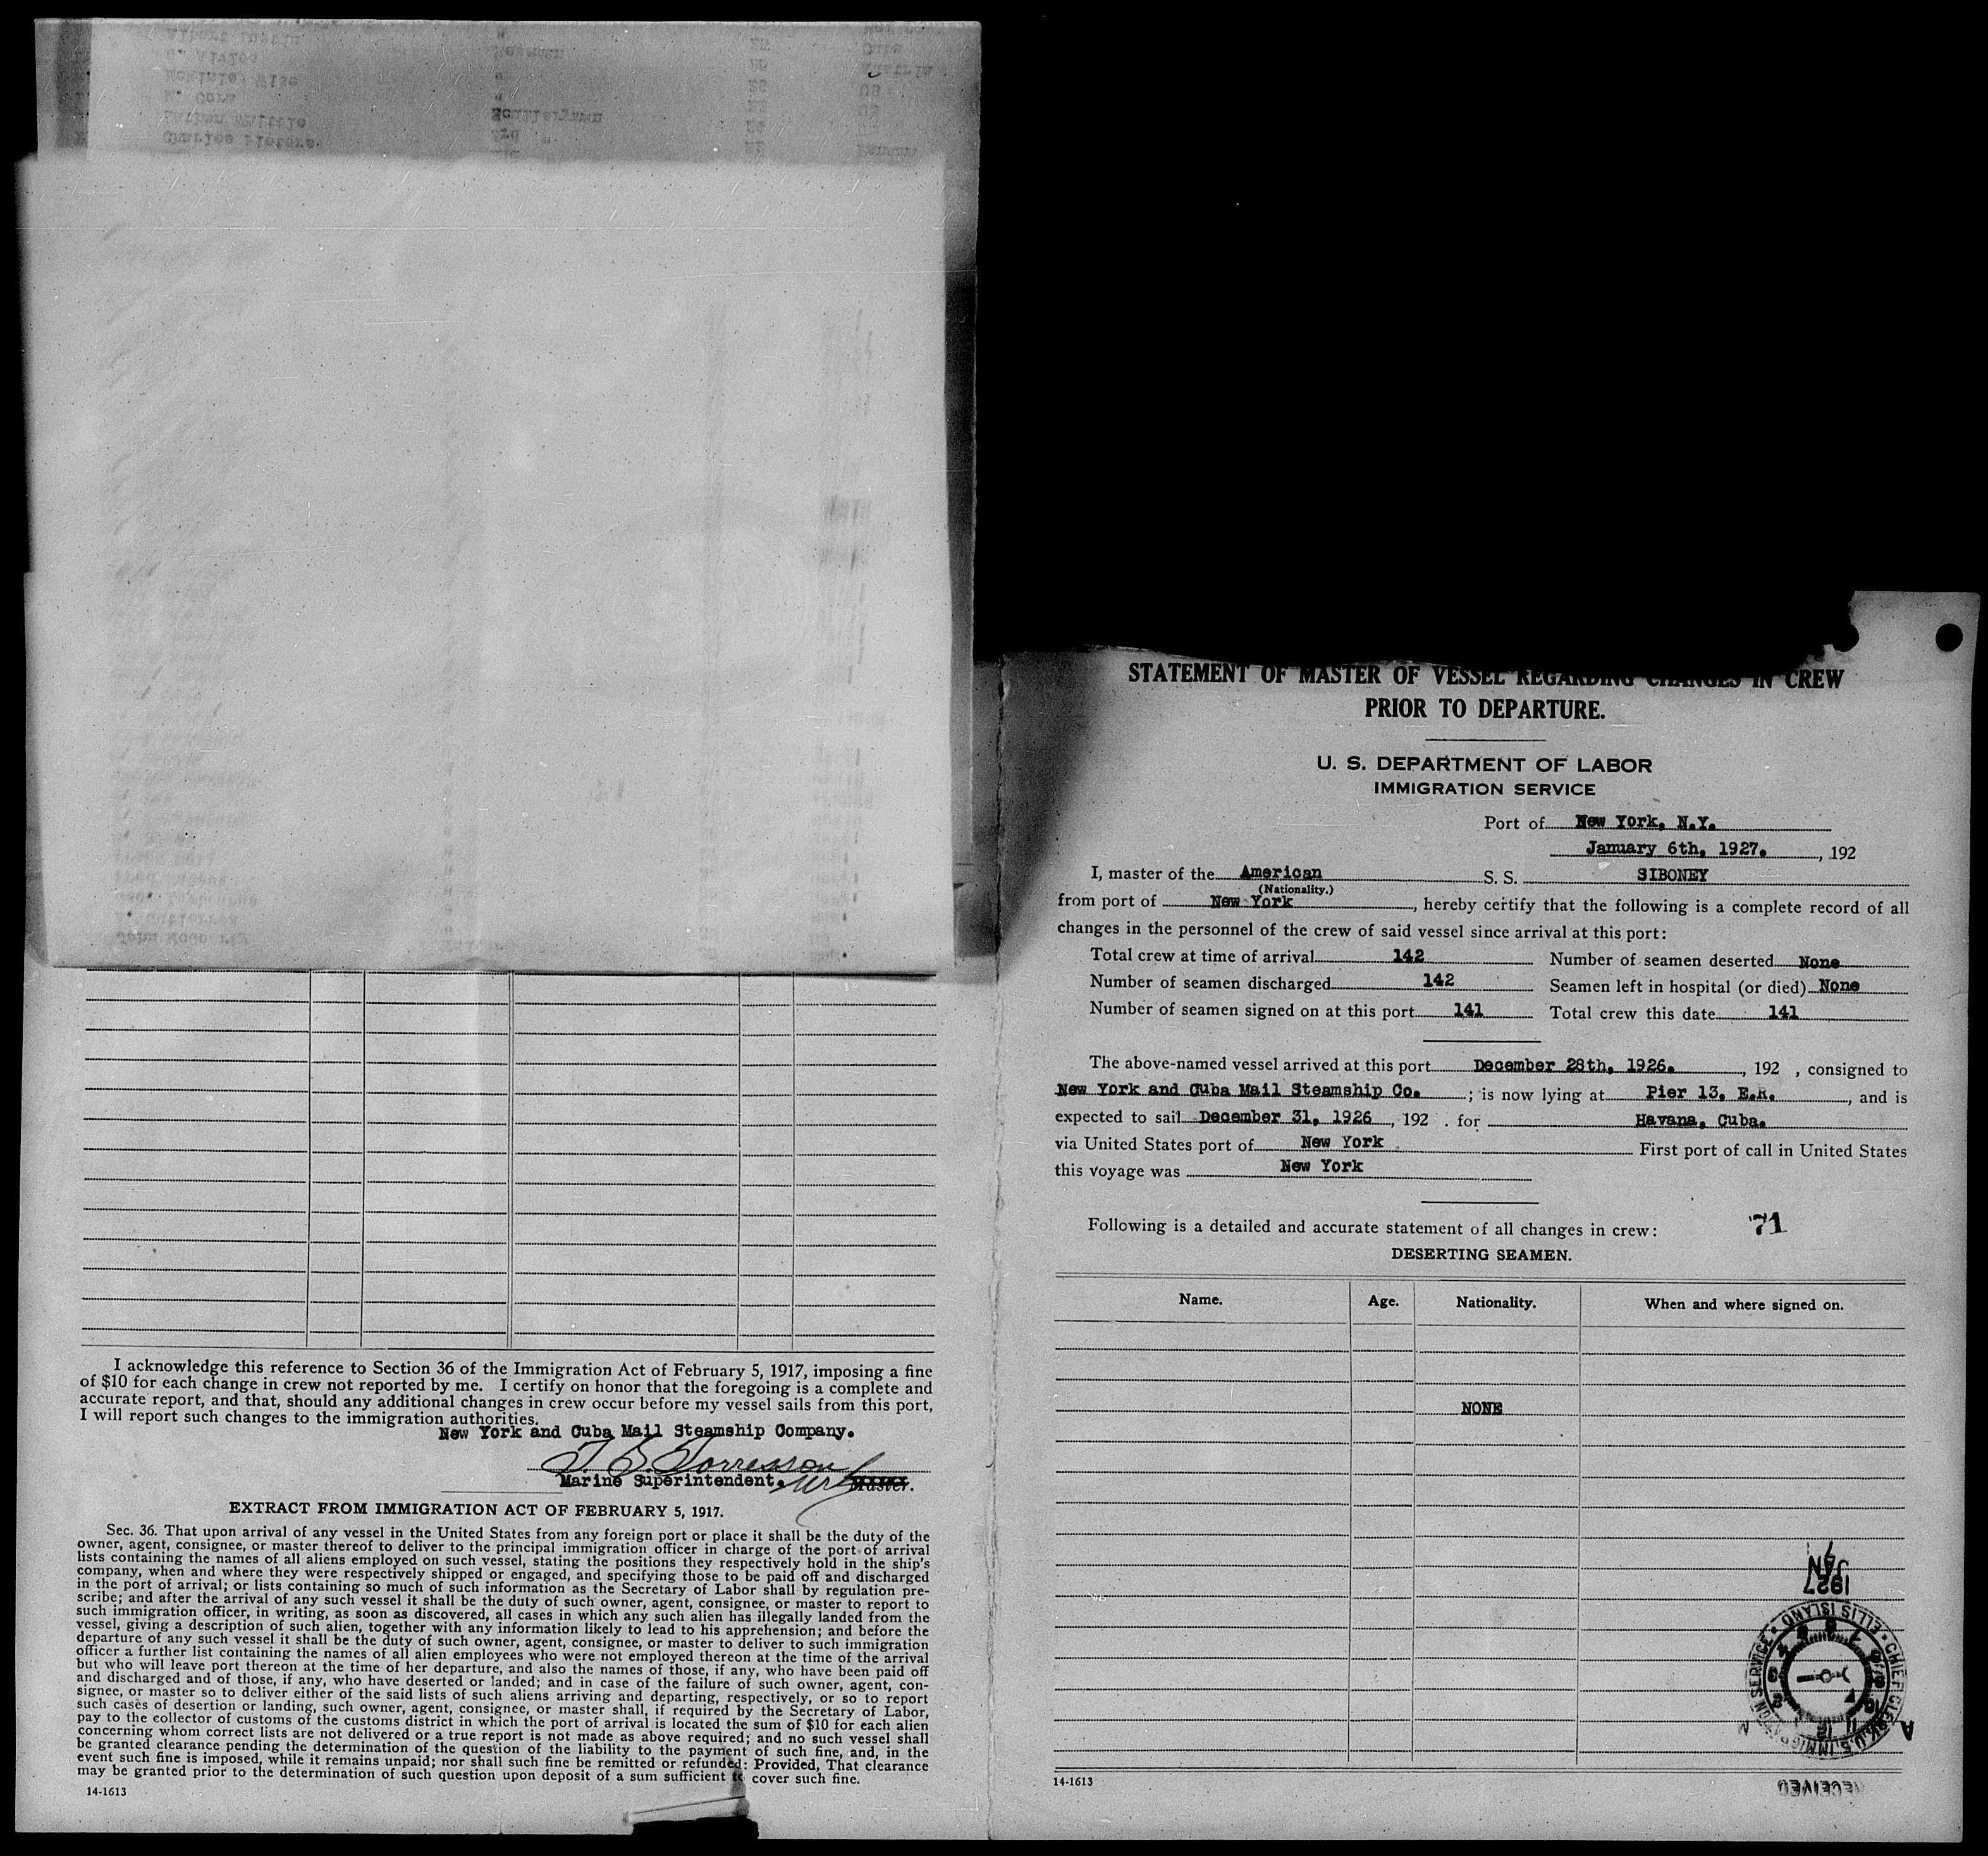 I acknowledge this reference to Section 36 of the Immigration Act of February 5, 1917, imposing a fine
of $10 for each change in crew not reported by me. I certify on honor that the foregoing is a complete and
accurate report, and that, should any additional changes in crew occur before my vessel sails from this port,
I will report such changes to the immigration authorities.
New York and Cuba Mail Steamship Company.
Marine Superintendent.
Master.
EXTRACT FROM IMMIGRATION ACT OF FEBRUARY 5, 1917.
Sec. 36. That upon arrival of any vessel in the United States from any foreign port or place it shall be the duty of the
owner, agent, consignee, or master thereof to deliver to the principal immigration officer in charge of the port of arrival
lists containing the names of all aliens employed on such vessel, stating the positions they respectively hold in the ship's
company, when and where they were respectively shipped or engaged, and specifying those to be paid off and discharged
in the port of arrival; or lists containing so much of such information as the Secretary of Labor shall by regulation pre-
scribe; and after the arrival of any such vessel it shall be the duty of such owner, agent, consignee, or master to report to
such immigration officer, in writing, as soon as discovered, all cases in which any such alien has illegally landed from the
vessel, giving a description of such alien, together with any information likely to lead to his apprehension; and before the
departure of any such vessel it shall be the duty of such owner, agent, consignee, or master to deliver to such immigration
officer a further list containing the names of all alien employees who were not employed thereon at the time of the arrival
but who will leave port thereon at the time of her departure, and also the names of those, if any, who have been paid off
and discharged and of those, if any, who have deserted or landed; and in case of the failure of such owner, agent, con-
signee, or master so to deliver either of the said lists of such aliens arriving and departing, respectively, or so to report
such cases of desertion or landing, such owner, agent, consignee, or master shall, if required by the Secretary of Labor,
pay to the collector of customs of the customs district in which the port of arrival is located the sum of $10 for each alien
concerning whom correct lists are not delivered or a true report is not made as above required; and no such vessel shall
be granted clearance pending the determination of the question of the liability to the payment of such fine, and, in the
event such fine is imposed, while it remains unpaid; nor shall such fine be remitted or refunded: Provided, That clearance
may be granted prior to the determination of such question upon deposit of a sum sufficient to cover such fine.
14-1613
STATEMENT OF MASTER OF VESSEL REGARDING CHANGES IN CREW
PRIOR TO DEPARTURE.
U. S. DEPARTMENT OF LABOR
IMMIGRATION SERVICE
Port of New York, N.Y.
January 6th, 1927. , 192
I, master of the American S. S. SIBONEY
(Nationality.)
from port of New York , hereby certify that the following is a complete record of all
changes in the personnel of the crew of said vessel since arrival at this port:
Total crew at time of arrival 142 Number of seamen deserted None
Number of seamen discharged 142 Seamen left in hospital (or died) None
Number of seamen signed on at this port 141 Total crew this date 141
The above-named vessel arrived at this port December 28th, 1926. , 192 , consigned to
New York and Cuba Mail Steamship Co. ; is now lying at Pier 13, E.R. , and is
expected to sail December 31, 1926 , 192 . for Havana, Cuba.
via United States port of New York First port of call in United States
this voyage was New York
Following is a detailed and accurate statement of all changes in crew: 71
DESERTING SEAMEN.
Name. Age. Nationality. When and where signed on.
NONE
JAN 7
1927
CHIEF CLERK, U.S. IMMIGRATION SERVICE • ELLIS ISLAND •
RECEIVED
14-1613